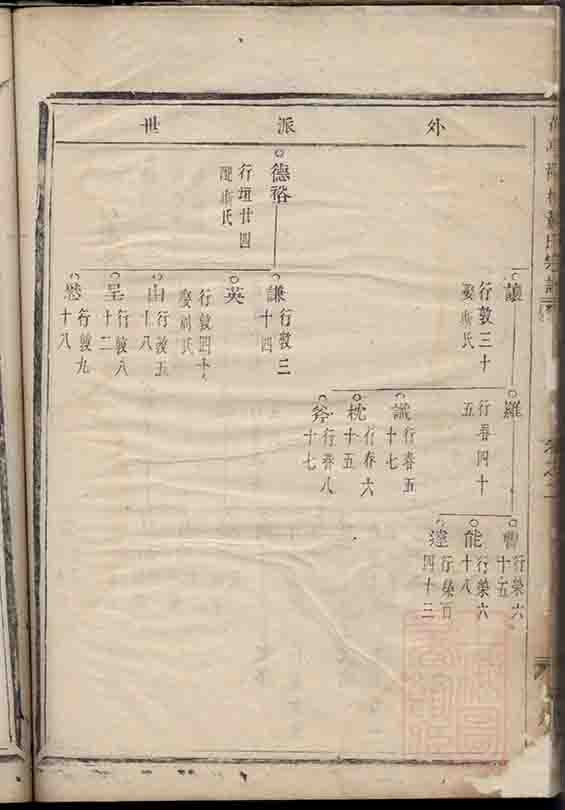 外派世
讓
行敦三十
娶斯氏
羅
行春四十
五
行榮六
十五
能
行榮六
十八
達
行榮百
四十三
識
行春五
十七
枕
行春六
十五
斧
行春八
十七
德裕
行垣廿四
娶斯氏
謙
行敦三
十四
英
行敦四十
娶劉氏
由
行敦五
十八
呈
行敦八
十二
行敦九
十八